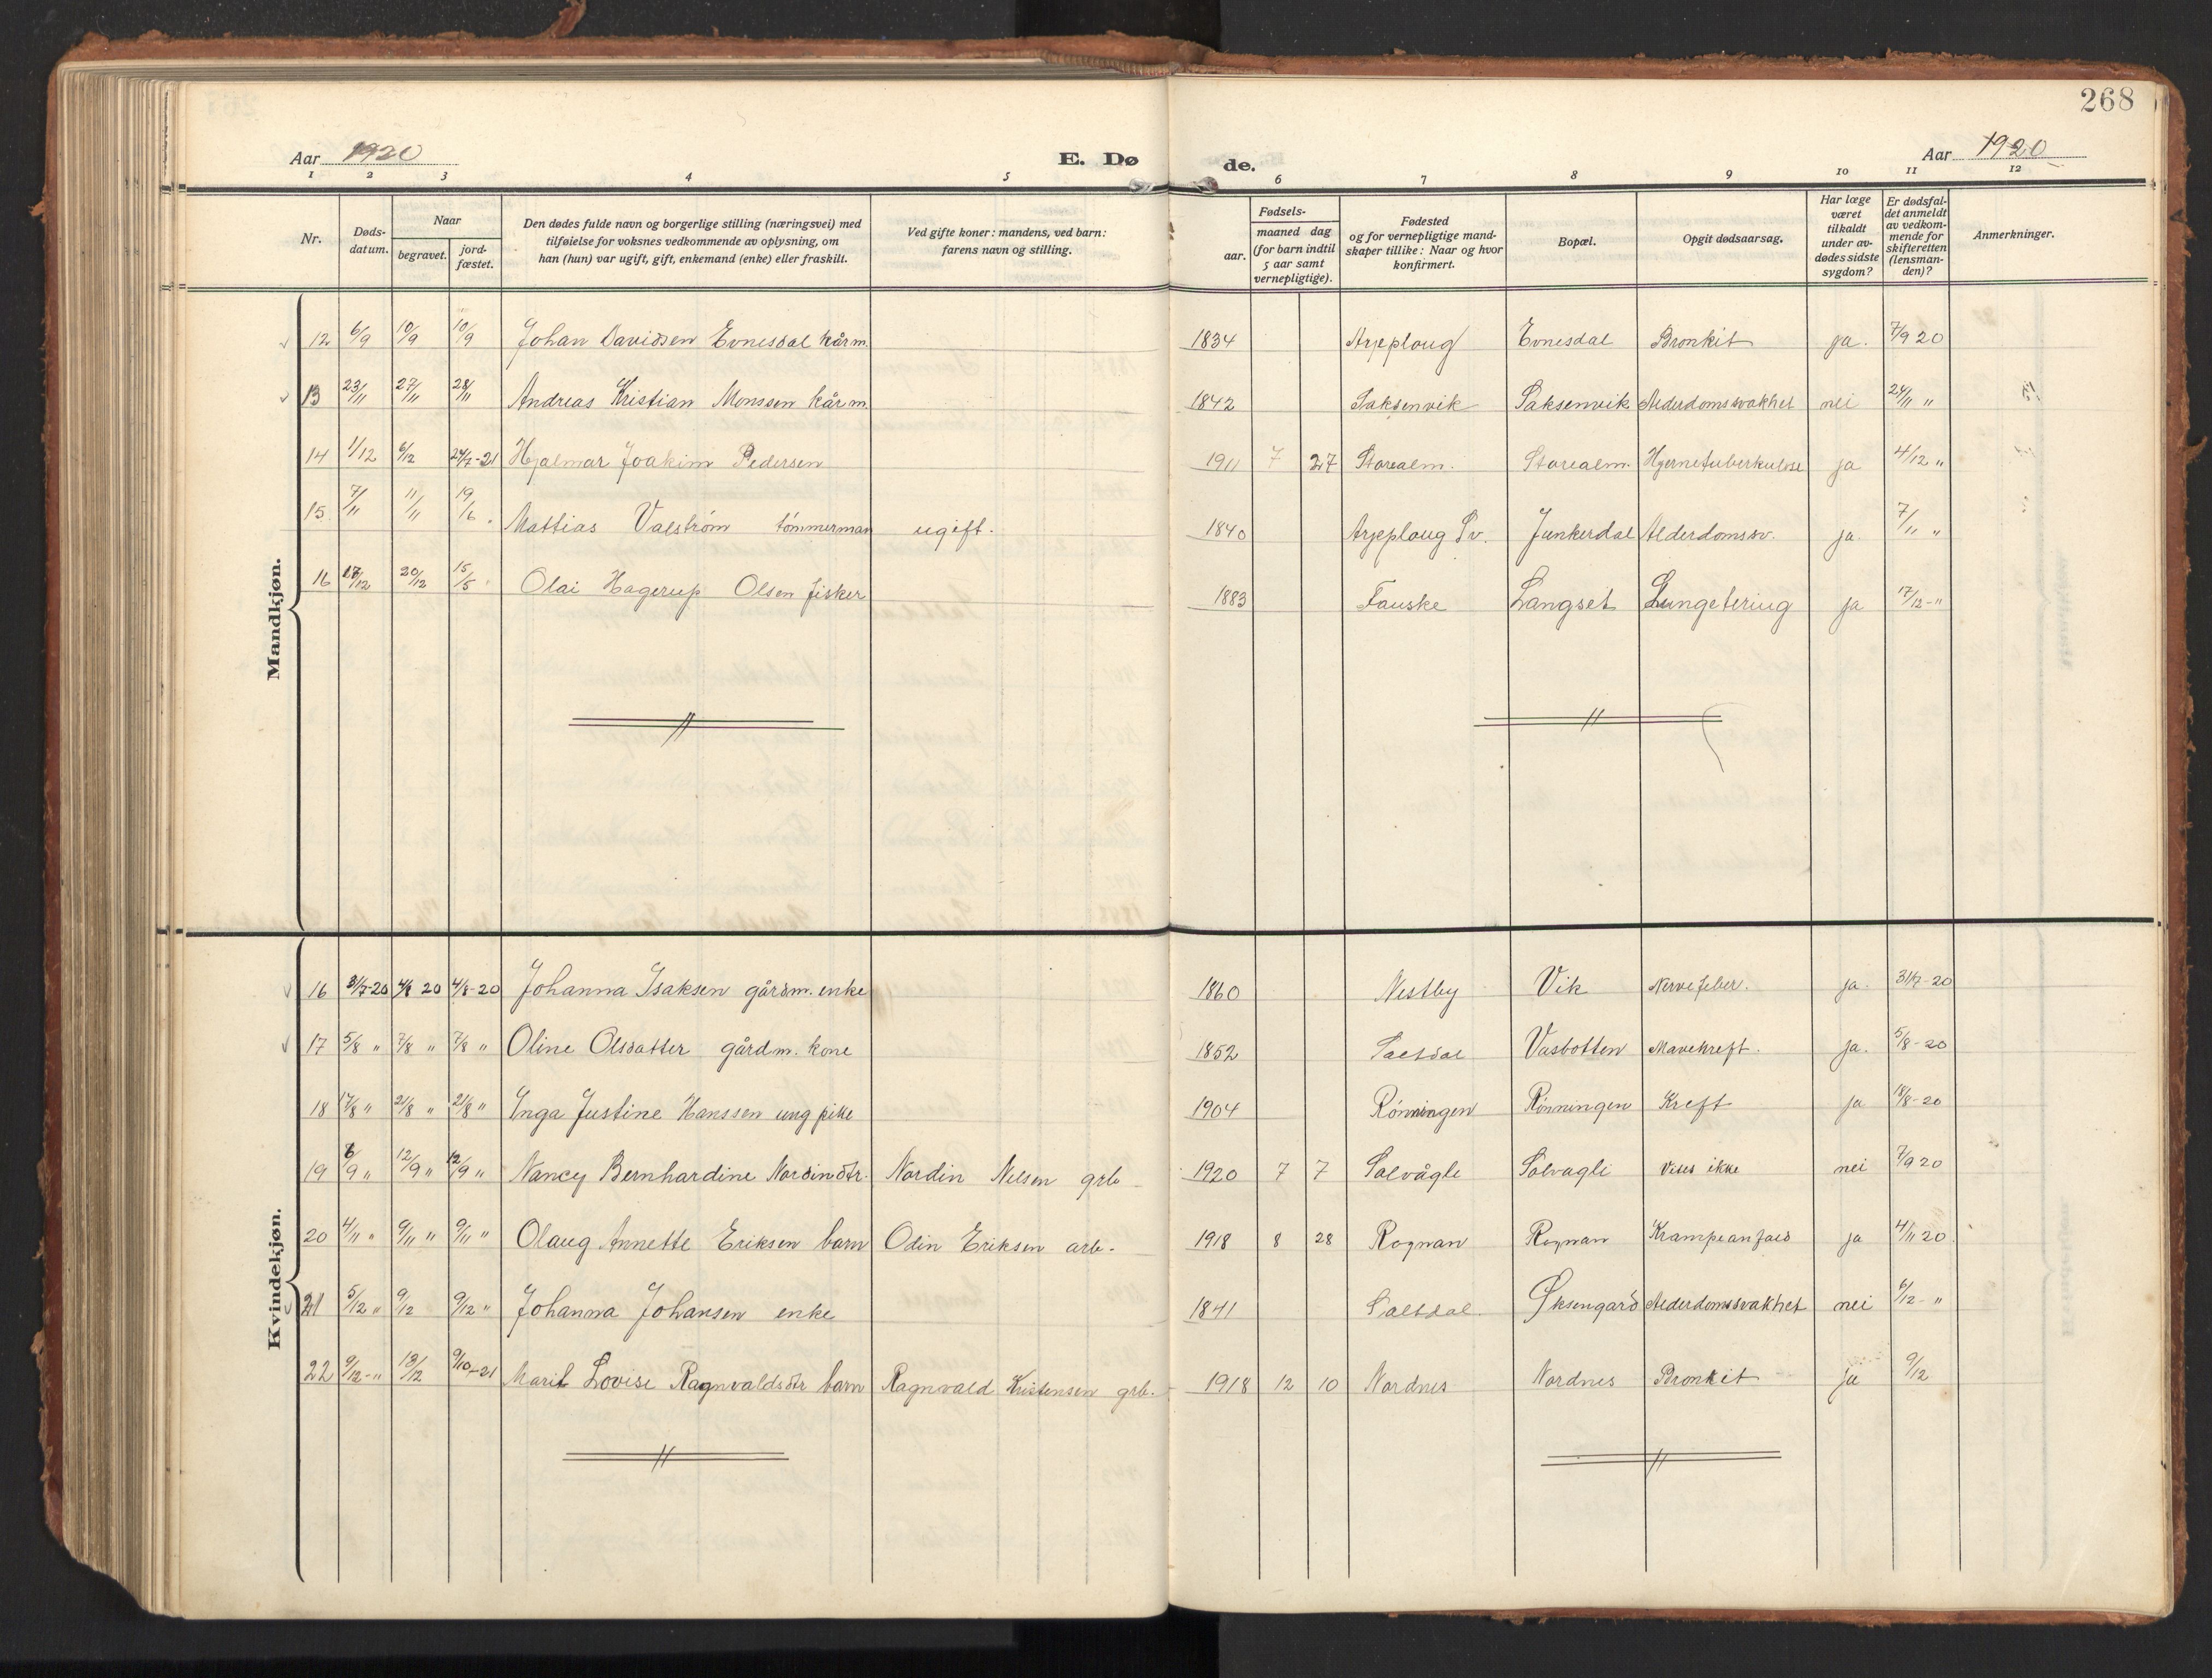 268
Aar 1920 E. Dø de. Aar 1920
1 2 3 4 5 6 7 8 9 10 11 12
Nr. Dødsdatum. Naar begravet. jordfæstet. Den dødes fulde navn og borgerlige stilling (næringsvei) med tilføielse for voksnes vedkommende av oplysning, om han (hun) var ugift, gift, enkemand (enke) eller fraskilt. Ved gifte koner: mandens, ved barn: farens navn og stilling. Fødsels- aar. maaned dag (for barn indtil 5 aar samt vernepligtige). Fødested og for vernepligtige mandskaper tillike: Naar og hvor konfirmert. Bopæl. Opgit dødsaarsag. Har læge været tilkaldt under avdødes sidste sygdom? Er dødsfaldet anmeldt av vedkommende for skifteretten (lensmanden)? Anmerkninger.
Mandkjøn.
12 6/9 10/9 10/9 Johan Davidsen Evnesdal kårm. 1834 Arjeploug Evnesdal Bronkit ja. 7/9 20
13 23/11 27/11 28/11 Andreas Kristian Monssen kårm. 1842 Saksenvik Saksenvik Alderdomssvakhet nei 24/11 "
14 1/12 6/12 24/7-21 Hjalmar Joakim Pedersen 1911 7 27 Storealm. Storealm. Hjernetuberkulose ja 4/12 "
15. 7/11 11/11 19/6. Mattias Valström tömmerman ugift. 1840 Arjeploug Sv. Junkerdal Alderdomssv. ja. 7/11 "
16 17/12 20/12 15/5 Olai Hagerup Olsen fisker 1883 Fauske Langset Lungetering ja 17/12-"
Kvindekjøn.
16 31/7-20 4/8 20 4/8-20 Johanna Isaksen gårdm. enke 1860 Nestby Vik Nervefeber. ja. 31/7-20
17 5/8 " 7/8 " 7/8 " Oline Olsdatter gårdm. kone 1852 Saltdal Vasbotten Mavekreft. ja. 5/8-20
18 17/8 " 21/8 " 21/8 " Inga Justine Hanssen ung pike 1904 Rönningen Rönningen Kreft ja 18/8-20
19 6/9 " 12/9 " 12/9 " Nancy Bernhardine Nordindtr. Nordin Nilsen grb 1920 7 7 Solvågle Solvagli vises ikke nei 7/9 20
20 4/11 " 9/11 " 9/11 " Olaug Annette Eriksen barn Odin Eriksen arb. 1918 8 28 Rognan Rognan Krampeanfald ja 4/11 20.
21 5/12 " 9/12 9/12 " Johanna Johansen enke 1841 Saltdal. Øksengård Alderdomssvakhet nei 6/12-"
22 9/12-" 13/12 9/10-21 Marit Lovise Ragnvaldsdtr barn Ragnvald Kristensen grb. 1918 12 10 Nordnes Nordnes Bronkit ja 9/12